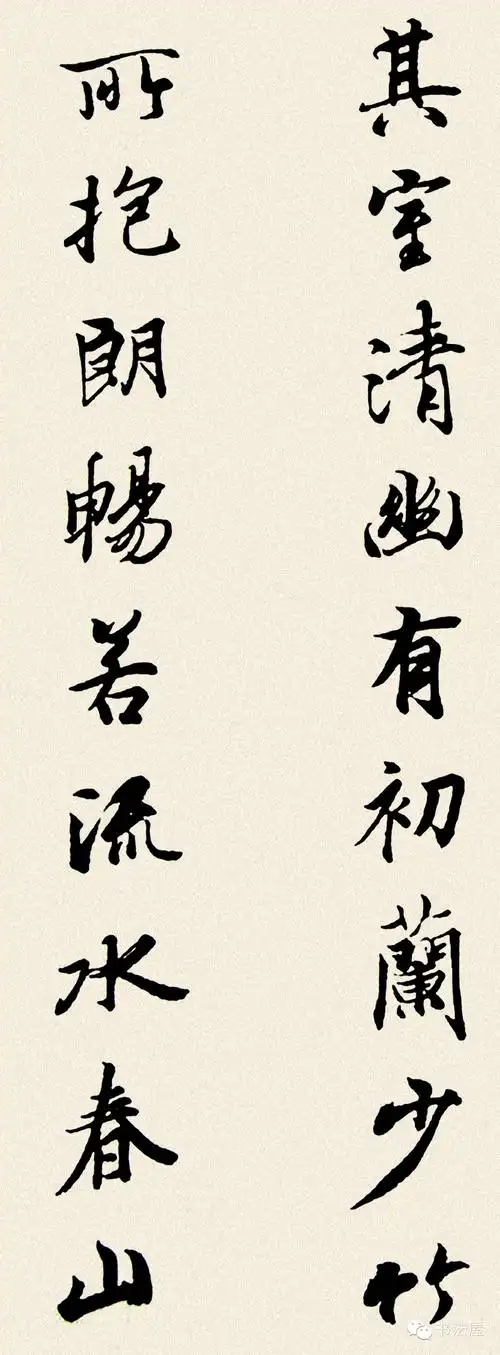 其室清幽有初蘭少竹
所抱朗暢若流水春山
书法屋